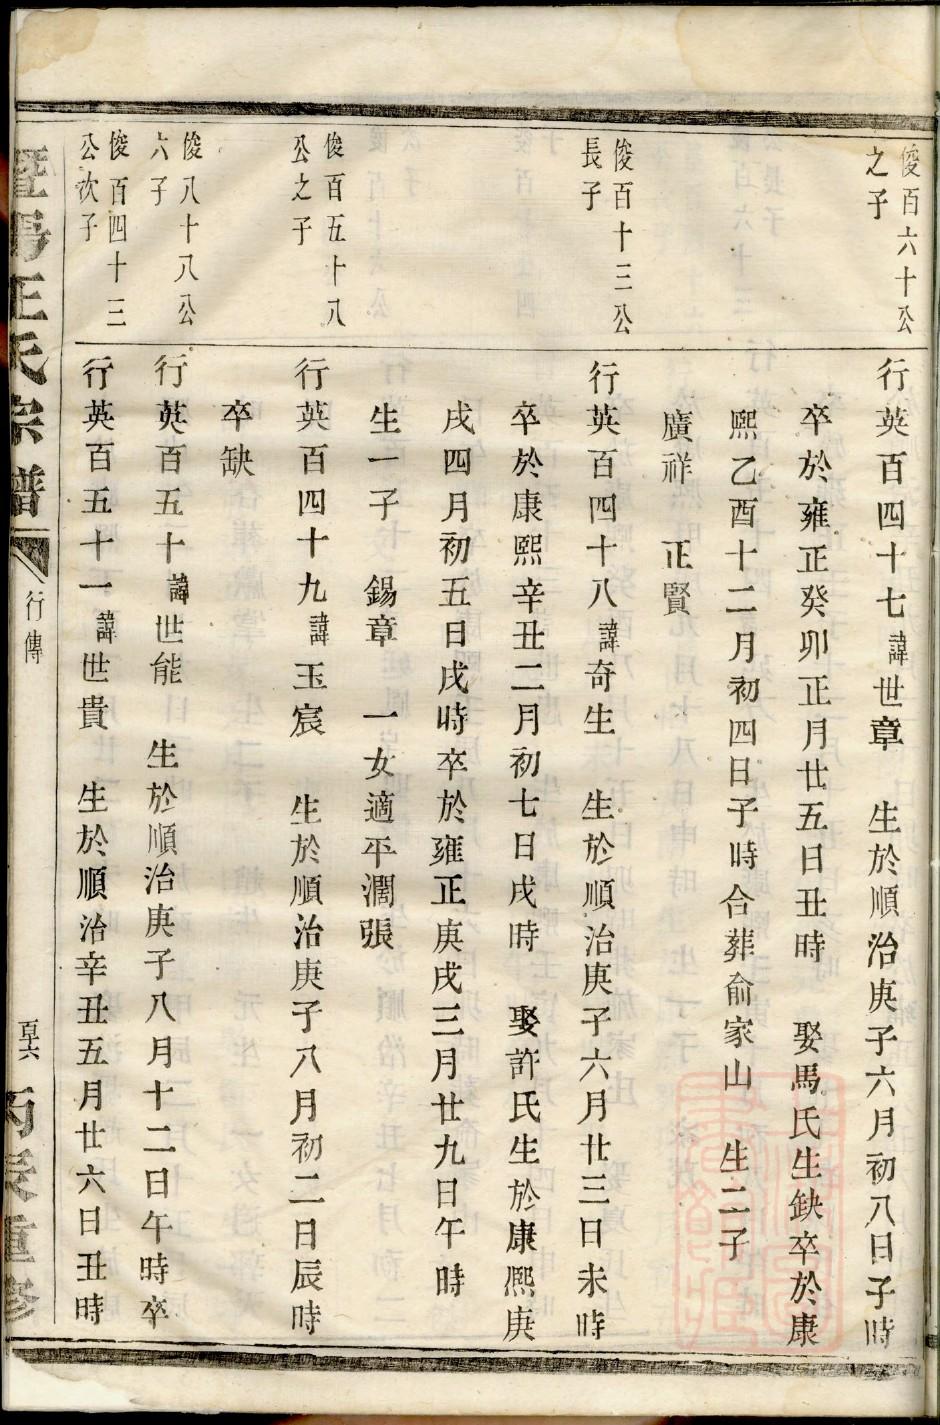 俊百六十公
之子
行英百四十七諱世章　生於順治庚子六月初八日子時
卒於雍正癸卯正月廿五日丑時　娶馬氏生缺卒於康
熙乙酉十二月初四日子時合葬俞家山　生二子
廣祥　正賢
俊百十三公
長子
行英百四十八諱奇生　生於順治庚子六月廿三日未時
卒於康熙辛丑二月初七日戌時　娶許氏生於康熙庚
戌四月初五日戌時卒於雍正庚戌三月廿九日午時
生一子　錫章　一女適平濶張
俊百五十八
公之子
行英百四十九諱玉宸　生於順治庚子八月初二日辰時
卒缺
俊八十八公
六子
行英百五十諱世能　生於順治庚子八月十二日午時卒
俊百四十三
公次子
行英百五十一諱世貴　生於順治辛丑五月廿六日丑時
暨陽王氏宗譜
行傳
百六
丙辰重修